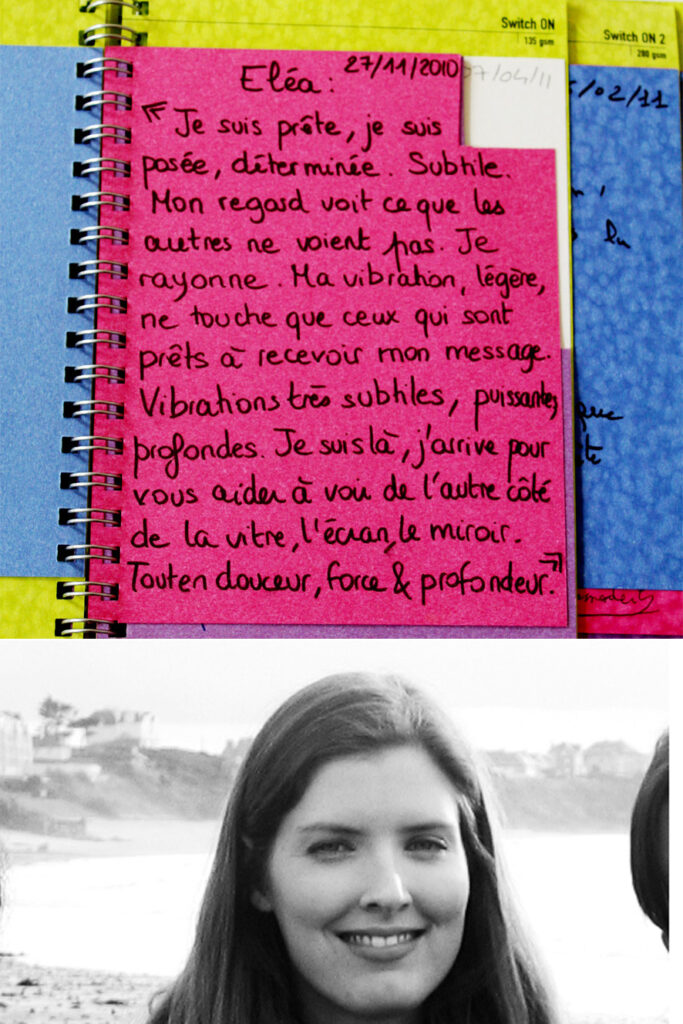 Switch ON
135 gsm
Switch ON 2
280 gsm
Eléa : 27/11/2010
07/04/11
/02/11
"Je suis prête, je suis
posée, déterminée. Subtile.
Mon regard voit ce que les
autres ne voient pas. Je
rayonne. Ma vibration, légère,
ne touche que ceux qui sont
prêts à recevoir mon message.
Vibrations très subtiles, puissantes,
profondes. Je suis là, j'arrive pour
vous aider à voir de l'autre côté
de la vitre, l'écran, le miroir.
Tout en douceur, force & profondeur."